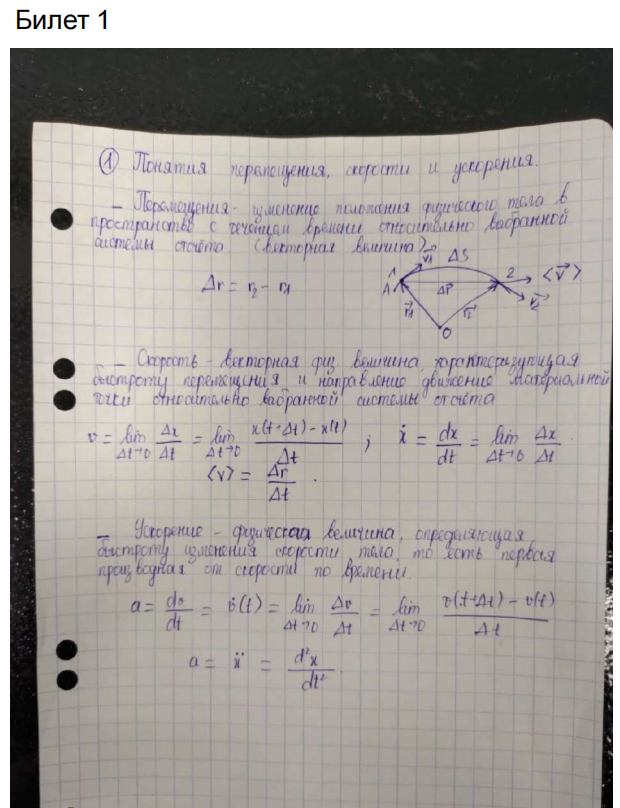 Билет 1
① Понятия перемещения, скорости и ускорения.
– Перемещения - изменение положения физического тела в
пространстве с течением времени относительно вабранной
системы отсчёта (векторная величина)
Δr = r₂ - r₁
1 v⃗₁ ΔS 2 ⟨v⃗⟩
A Δr⃗ v⃗₂
r⃗₁ r⃗₂
O
– Скорость - векторная физ величина, характеризующая
быстроту перемещения и направление движение материальной
точки относительно вабранной системы отсчёта
v = lim Δt→0 Δx/Δt = lim Δt→0 (x(t+Δt) - x(t))/Δt ; ẋ = dx/dt = lim Δt→0 Δx/Δt .
⟨v⟩ = Δr/Δt .
– Ускорение - физическая величина, определяющая
быстроту изменения скорости тела, то есть первая
производная от скорости по времени.
a = dv/dt = v̇(t) = lim Δt→0 Δv/Δt = lim Δt→0 (v(t+Δt) - v(t))/Δt
a = ẍ = d²x/dt²